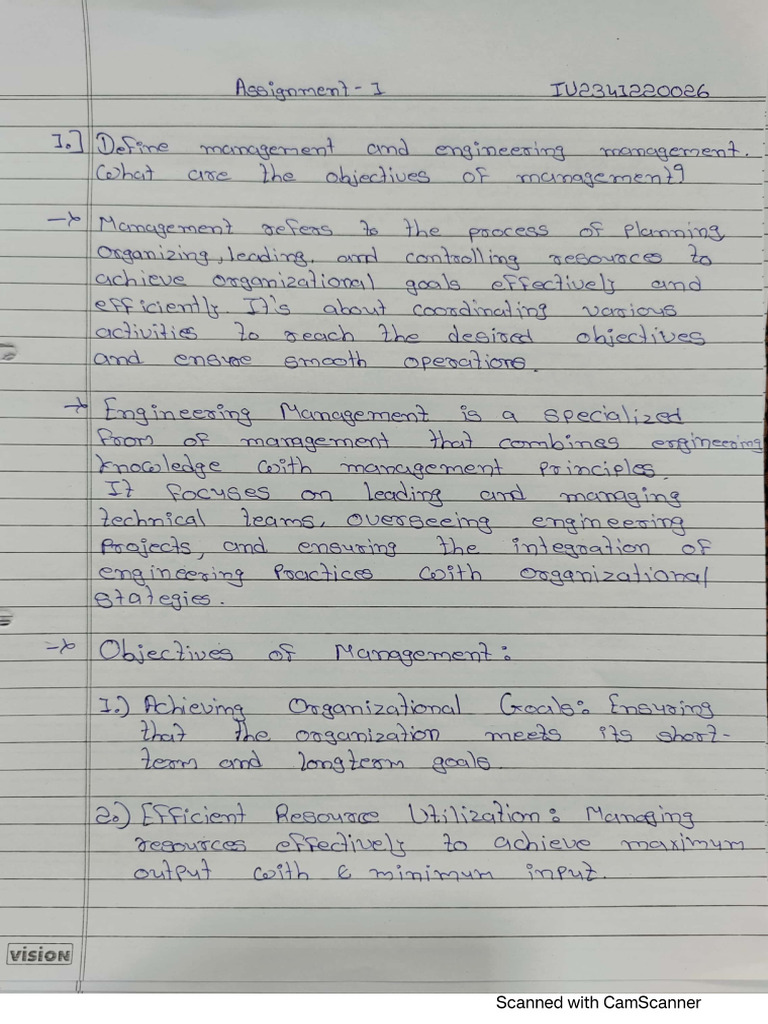 Assignment - 1 IU2341220026
1.] Define management and engineering management.
What are the objectives of management?
→ Management refers to the process of Planning
Organizing, leading, and controlling resources to
achieve organizational goals effectively and
efficiently. It's about coordinating various
activities to reach the desired objectives
and ensure smooth operations.
→ Engineering Management is a specialized
from of management that combines engineering
knowledge with management Principles.
It focuses on leading and managing
technical teams, overseeing engineering
Projects, and ensuring the integration of
engineering Practices with organizational
stategies.
→ Objectives of Management:
1.) Achieving Organizational Goals: Ensuring
that the organization meets its short-
term and longterm goals.
2.) Efficient Resource Utilization: Managing
resources effectively to achieve maximum
output with & minimum input.
VISION
Scanned with CamScanner